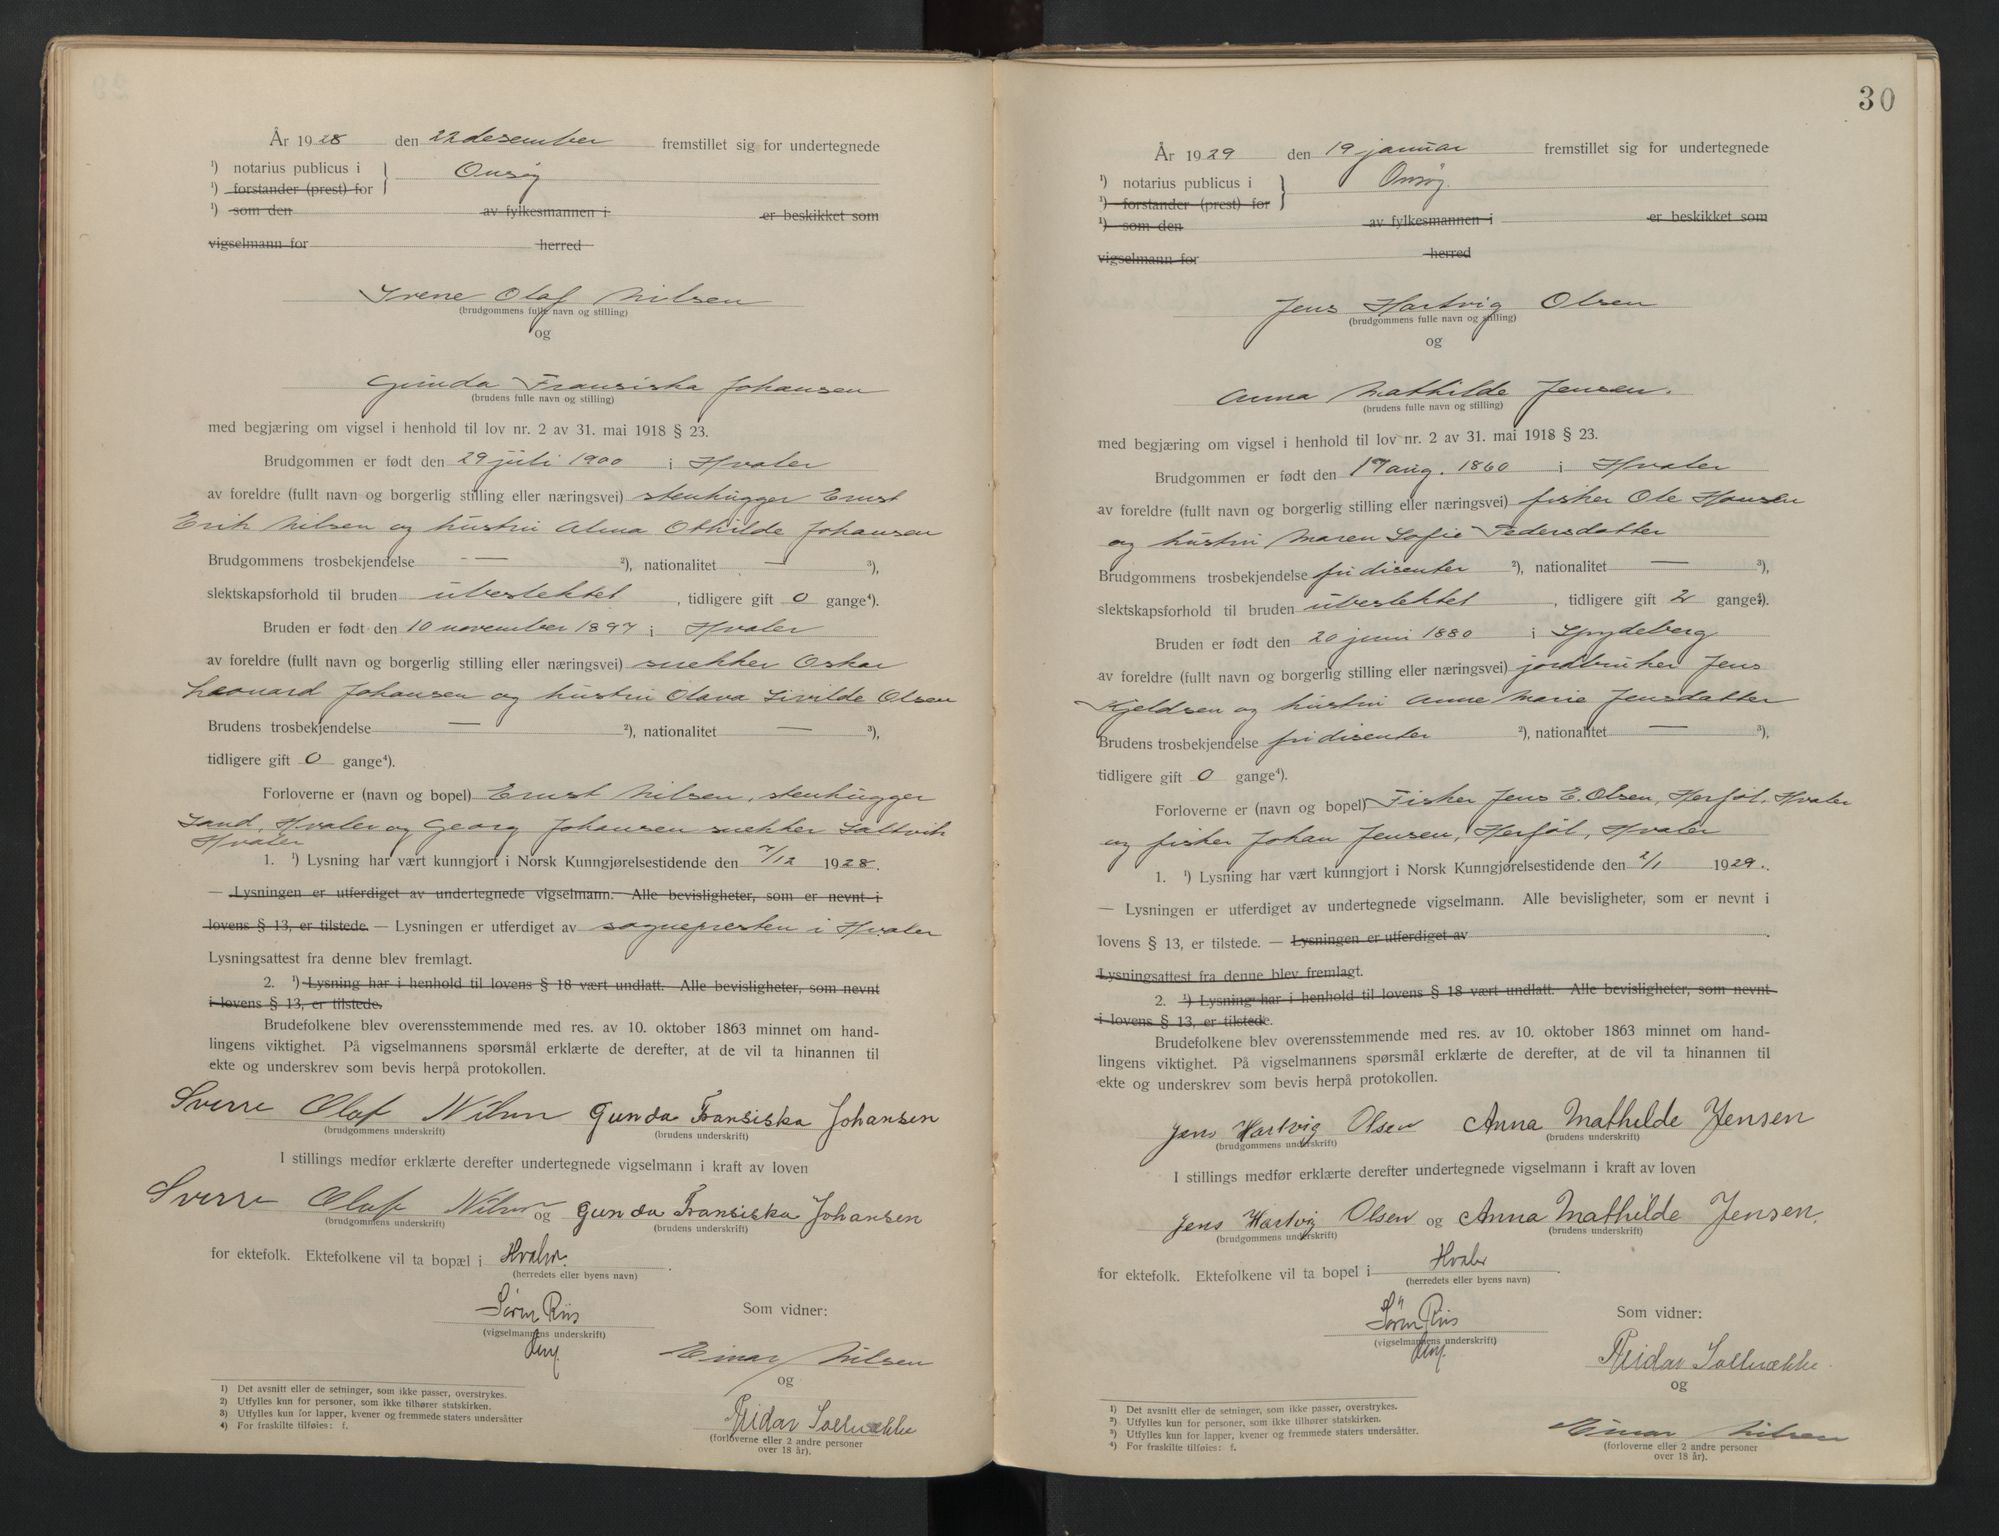 År 1928 den 22 desember fremstillet sig for undertegnede
¹) notarius publicus i } Onsøy
¹) forstander (prest) for
¹) som den av fylkesmannen i er beskikket som
vigselmann for herred
Sverre Olaf Nilsen
(brudgommens fulle navn og stilling)
og
Gunda Fransiska Johansen
(brudens fulle navn og stilling)
med begjæring om vigsel i henhold til lov nr. 2 av 31. mai 1918 § 23.
Brudgommen er født den 29 juli 1900 i Hvaler
av foreldre (fullt navn og borgerlig stilling eller næringsvei) stenhugger Ernst
Erik Nilsen og hustru Alma Othilde Johansen
Brudgommens trosbekjendelse — ²), nationalitet — ³),
slektskapsforhold til bruden ubeslektet, tidligere gift 0 gange⁴).
Bruden er født den 10 november 1897 i Hvaler
av foreldre (fullt navn og borgerlig stilling eller næringsvei) snekker Oskar
Leonard Johansen og hustru Olava Sivilde Olsen
Brudens trosbekjendelse — ²), nationalitet — ³),
tidligere gift 0 gange⁴).
Forloverne er (navn og bopel) Ernst Nilsen, stenhugger
Sand, Hvaler og Georg Johansen snekker Saltvik
Hvaler
1. ¹) Lysning har vært kunngjort i Norsk Kunngjørelsestidende den 7/12 1928.
— Lysningen er utferdiget av undertegnede vigselmann. Alle bevisligheter, som er nevnt i
lovens § 13, er tilstede. — Lysningen er utferdiget av sognepresten i Hvaler
Lysningsattest fra denne blev fremlagt.
2. ¹) Lysning har i henhold til lovens § 18 vært undlatt. Alle bevisligheter, som nevnt
i lovens § 13, er tilstede.
Brudefolkene blev overensstemmende med res. av 10. oktober 1863 minnet om hand-
lingens viktighet. På vigselmannens spørsmål erklærte de derefter, at de vil ta hinannen til
ekte og underskrev som bevis herpå protokollen.
Sverre Olaf Nilsen Gunda Fransiska Johansen
(brudgommens underskrift) (brudens underskrift)
I stillings medfør erklærte derefter undertegnede vigselmann i kraft av loven
Sverre Olaf Nilsen og Gunda Fransiska Johansen
(brudgommens underskrift) (brudens underskrift)
for ektefolk. Ektefolkene vil ta bopæl i Hvaler.
(herredets eller byens navn)
Søren Riis Som vidner:
(vigselmannens underskrift)
Einar Nilsen
og
Reidar Solbrække
(forloverne eller 2 andre personer
over 18 år).
1) Det avsnitt eller de setninger, som ikke passer, overstrykes.
2) Utfylles kun for personer, som ikke tilhører statskirken.
3) Utfylles kun for lapper, kvener og fremmede staters undersåtter
4) For fraskilte tilføies: f.
30
År 1929 den 19 januar fremstillet sig for undertegnede
¹) notarius publicus i } Onsøy.
¹) forstander (prest) for
¹) som den av fylkesmannen i er beskikket som
vigselmann for herred
Jens Hartvig Olsen
(brudgommens fulle navn og stilling)
og
Anna Mathilde Jensen.
(brudens fulle navn og stilling)
med begjæring om vigsel i henhold til lov nr. 2 av 31. mai 1918 § 23.
Brudgommen er født den 17 aug. 1860 i Hvaler
av foreldre (fullt navn og borgerlig stilling eller næringsvei) fisker Ole Hansen
og hustru Maren Sofie Pedersdatter
Brudgommens trosbekjendelse fri disenter ²), nationalitet — ³),
slektskapsforhold til bruden ubeslektet, tidligere gift 2 gange⁴).
Bruden er født den 20 juni 1880 i Spydeberg
av foreldre (fullt navn og borgerlig stilling eller næringsvei) jordbruker Jens
Kjeldsen og hustru Anne Marie Jensdatter
Brudens trosbekjendelse fri disenter ²), nationalitet — ³),
tidligere gift 0 gange⁴).
Forloverne er (navn og bopel) Fisker Jens E. Olsen, Herføl, Hvaler
og fisker Johan Jensen, Herføl, Hvaler
1. ¹) Lysning har vært kunngjort i Norsk Kunngjørelsestidende den 2/1 1929.
— Lysningen er utferdiget av undertegnede vigselmann. Alle bevisligheter, som er nevnt i
lovens § 13, er tilstede. — Lysningen er utferdiget av
Lysningsattest fra denne blev fremlagt.
2. ¹) Lysning har i henhold til lovens § 18 vært undlatt. Alle bevisligheter, som nevnt
i lovens § 13, er tilstede.
Brudefolkene blev overensstemmende med res. av 10. oktober 1863 minnet om hand-
lingens viktighet. På vigselmannens spørsmål erklærte de derefter, at de vil ta hinannen til
ekte og underskrev som bevis herpå protokollen.
Jens Hartvig Olsen Anna Mathilde Jensen
(brudgommens underskrift) (brudens underskrift)
I stillings medfør erklærte derefter undertegnede vigselmann i kraft av loven
Jens Hartvig Olsen og Anna Mathilde Jensen.
(brudgommens underskrift) (brudens underskrift)
for ektefolk. Ektefolkene vil ta bopel i Hvaler
(herredets eller byens navn)
Søren Riis Som vidner:
(vigselmannens underskrift)
Reidar Solbrække
og
Einar Nilsen
(forloverne eller 2 andre personer
over 18 år).
1) Det avsnitt eller de setninger, som ikke passer, overstrykes.
2) Utfylles kun for personer, som ikke tilhører statskirken.
3) Utfylles kun for lapper, kvener og fremmede staters undersåtter.
4) For fraskilte tilføies: f.